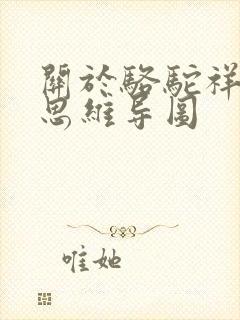 關於駱駝祥
思維导圖
唯她